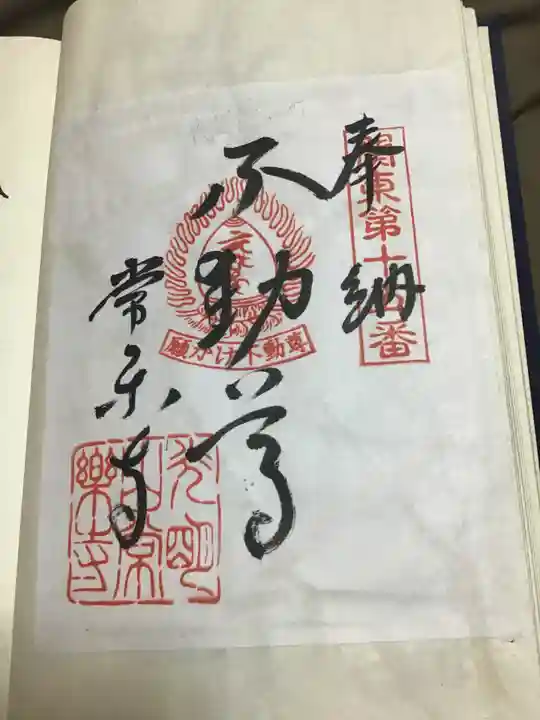 奉納
関東第十四番
不動尊
願かけ不動尊
常楽寺